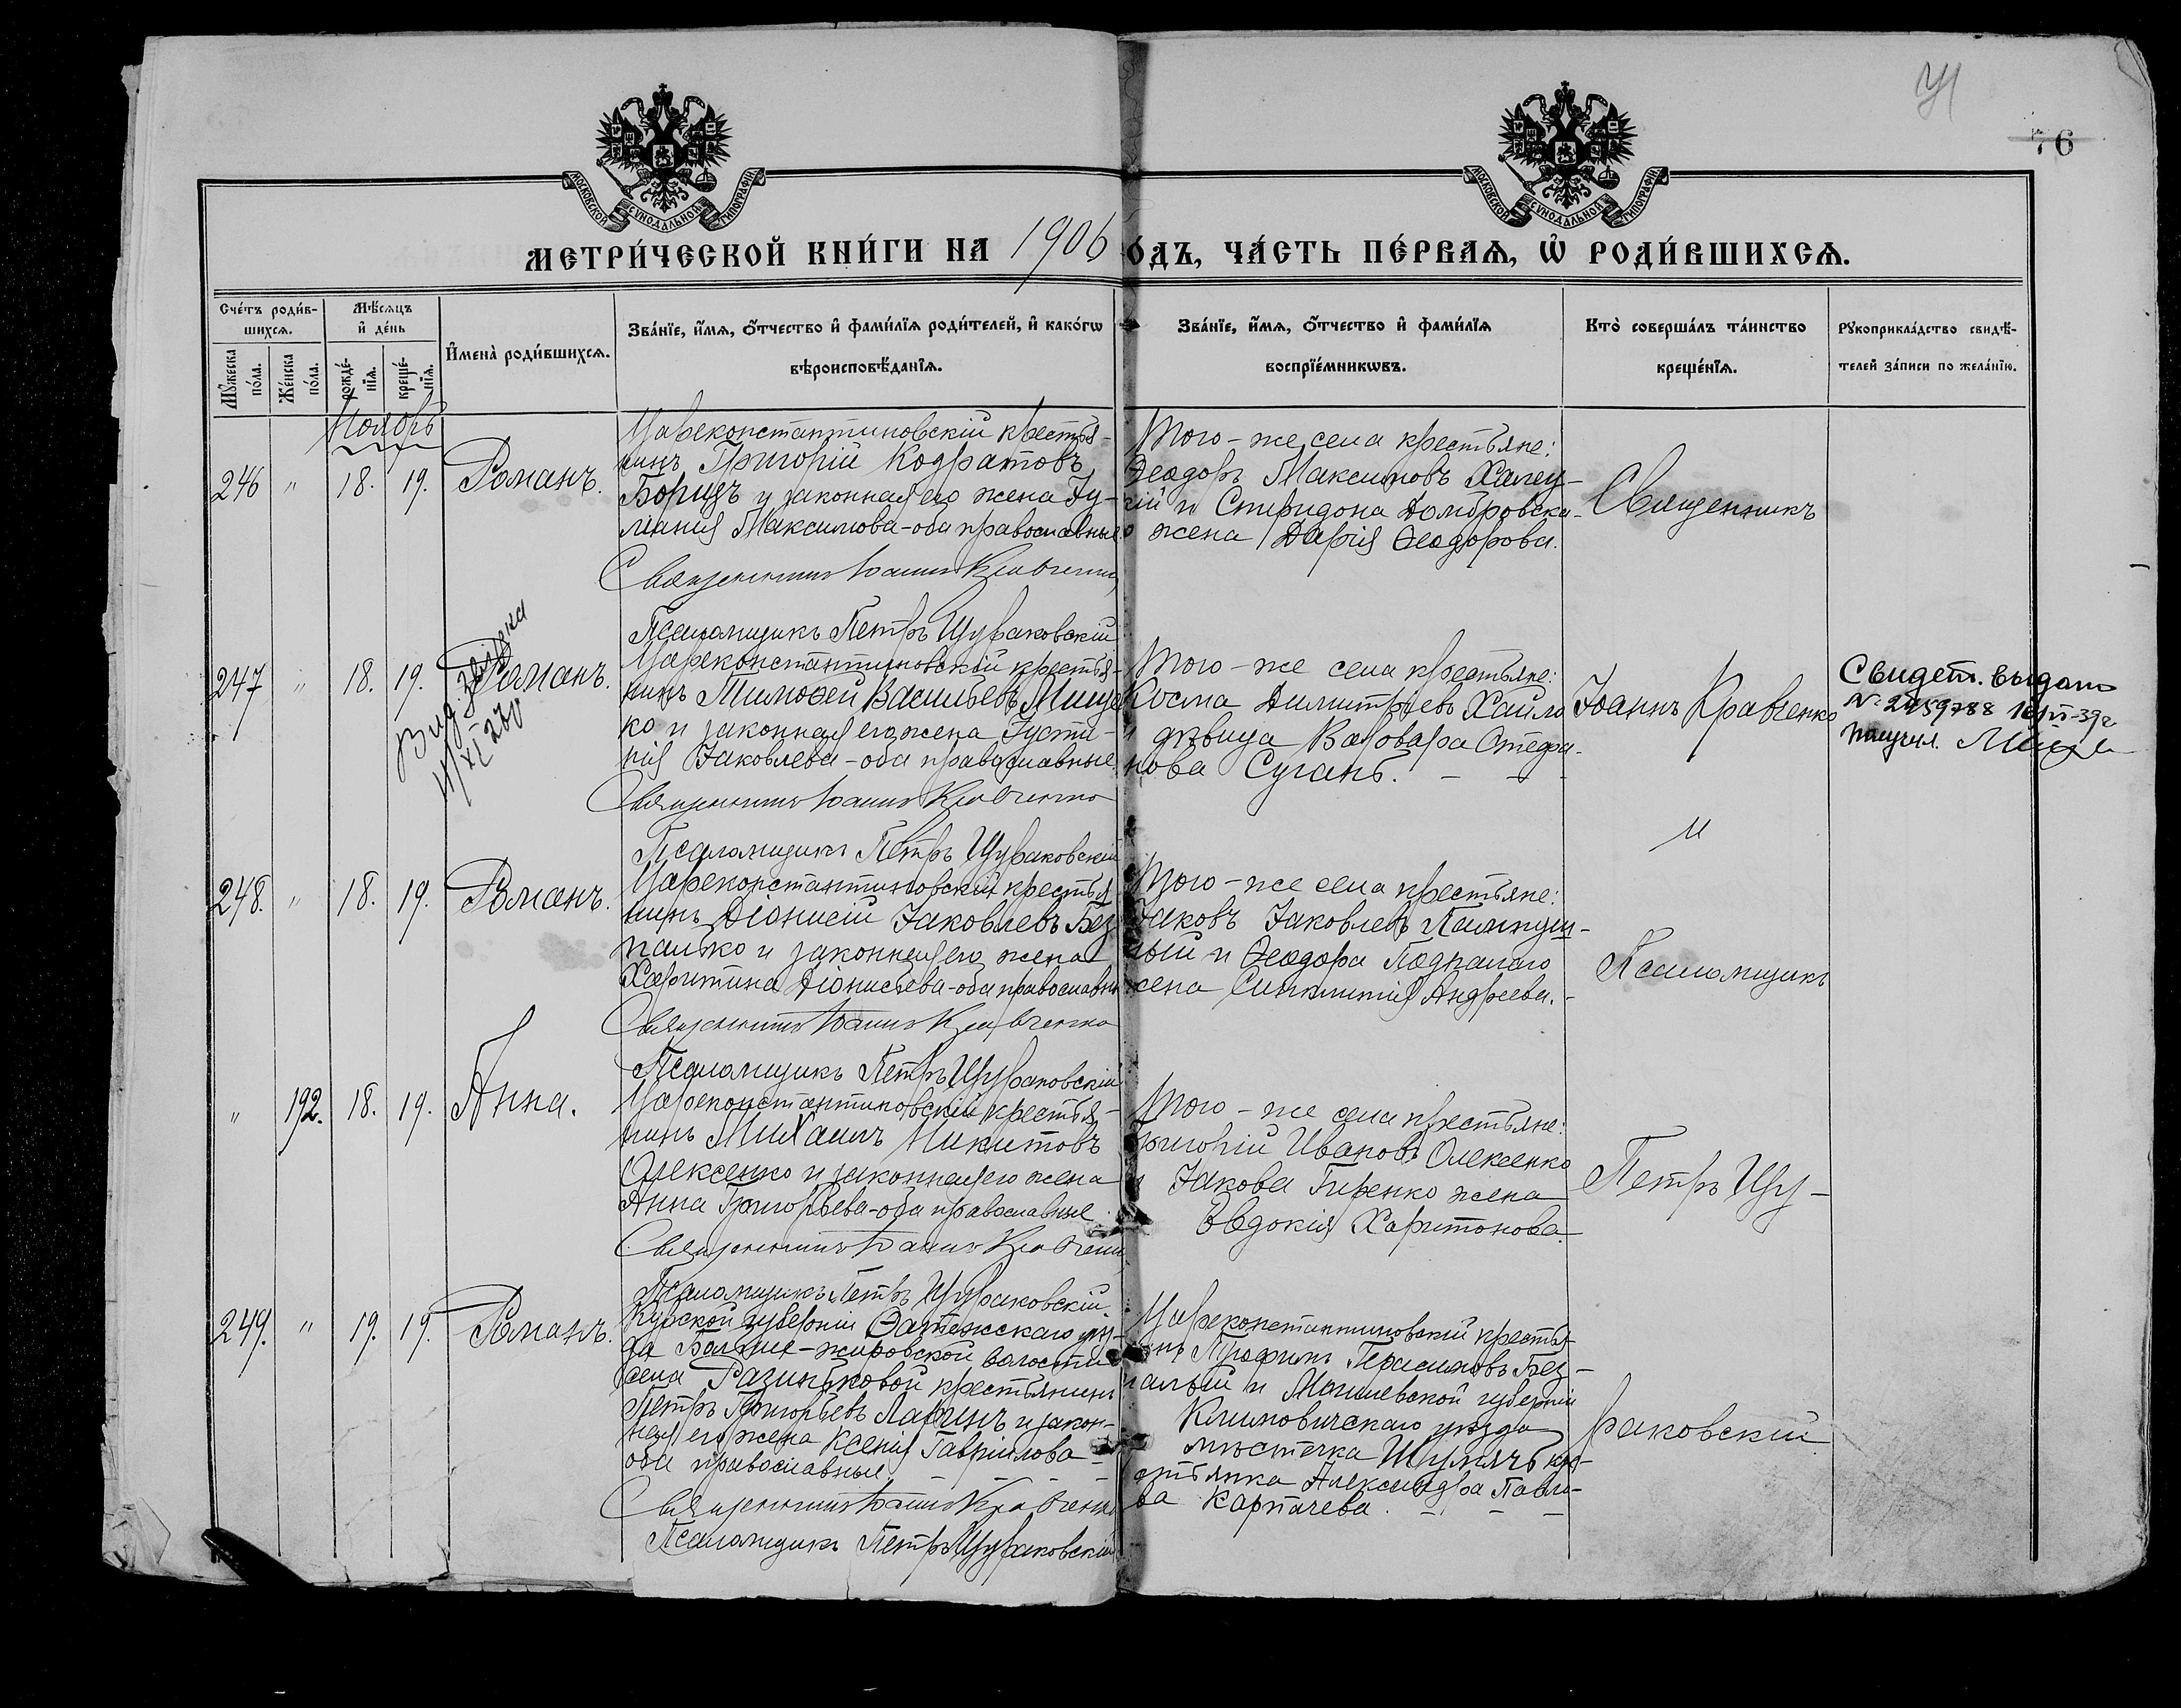 76
МОСКОВСКОЙ СУНОДАЛЬНОЙ ТИПОГРАФІИ
МОСКОВСКОЙ СУНОДАЛЬНОЙ ТИПОГРАФІИ
МЕТРИ́ЧЕСКОЙ КНИ́ГИ НА 1906 ОДЪ, ЧА́СТЬ ПЕ́РВАѦ, Ѡ҆ РОДИ́ВШИХСѦ.
Сче́тъ роди́в-
шихсѧ.
Мꙋ́жеска по́ла.
Же́нска по́ла.
Мѣ́сѧцъ
и҆ де́нь
рожде́-
нїѧ.
креще́-
нїѧ.
И҆мена̀ роди́вшихсѧ.
Зва́нїе, и҆́мѧ, ѻ҆́тчество и҆ фами́лїѧ роди́телей, и҆ како́гѡ
вѣроисповѣ́данїѧ.
Зва́нїе, и҆́мѧ, ѻ҆́тчество и҆ фами́лїѧ
воспрїе́мникѡвъ.
Кто̀ соверша́лъ та́инство
креще́нїѧ.
Рꙋкоприкла́дство свидѣ́-
телей за́писи по жела́нїю.
Ноябрь
246 " 18. 19. Романъ.
Цареконстантиновскій крестья-
нинъ Григорій Кодратовъ
Борщъ и законная его жена Іу-
ліанія Максимова-оба православные
Священникъ Іоаннъ Кравченко
Псаломщикъ Петръ Щураковскій
Того-же села крестьяне:
Ѳеодоръ Максимовъ Халец-
кій и Спиридона Домбровска-
о жена Дарія Ѳеодорова.
Священникъ
247 " 18. 19. Романъ.
Цареконстантиновскій крестья-
нинъ Тимоѳей Васильевъ Мище
ко и законная его жена Іусти-
нія Іаковлева-оба православные.
Священникъ Іоаннъ Кравченко
Псаломщикъ Петръ Щураковскій
Того-же села крестьяне:
Косма Димитріевъ Хайло
и дѣвица Варвара Стефа-
нова Суганъ.
Іоаннъ Кравченко
и
Свидет. выдано
№ 2459788
получил.
248. " 18. 19. Романъ.
Цареконстантиновскій крестья
нинъ Діонисій Іаковлевъ Без
палько и законная его жена
Харитина Діонисьева-оба православны
Священникъ Іоаннъ Кравченко
Псаломщикъ Петръ Щураковскій
Того-же села крестьяне:
Іаковъ Іаковлевъ
ный и Ѳеодора Подпалаго
жена Синклитія Андреева.
Псаломщикъ
" 192. 18. 19. Анна.
Цареконстантиновскій крестья-
нинъ Михаилъ Никитовъ
Олексенко и законная его жена
Анна Григорьева-оба православные
Священникъ Іоаннъ Кравченко
Псаломщикъ Петръ Щураковскій.
Того-же села крестьяне:
Григорій Ивановъ Олексенко
и Іакова Гиренко жена
Евдокія Харитонова
Петръ Щу-
249. " 19. 19. Романъ.
Курской губерніи Фатежскаго уѣз-
да Больше-жировской волости
села Разиньковой крестьянинъ
Петръ Григорьевъ Лавинъ и закон-
ная его жена Ксенія Гавріилова
оба православные
Священникъ Іоаннъ Кравченко
Псаломщикъ Петръ Щураковскій
Цареконстантиновскій крестья
нинъ Трофимъ Герасимовъ Без-
палый и Могилевской губерніи
Климовичскаго уѣзда
мѣстечка Шумячь кре-
стьянка Александра Павло-
ва Карпачева.
раковскій